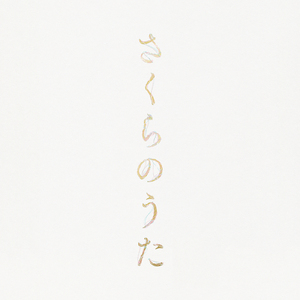 さくらのうた